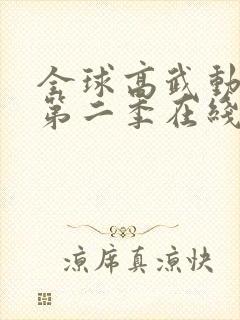 全球高武動
第二季在綫
凉席真凉快